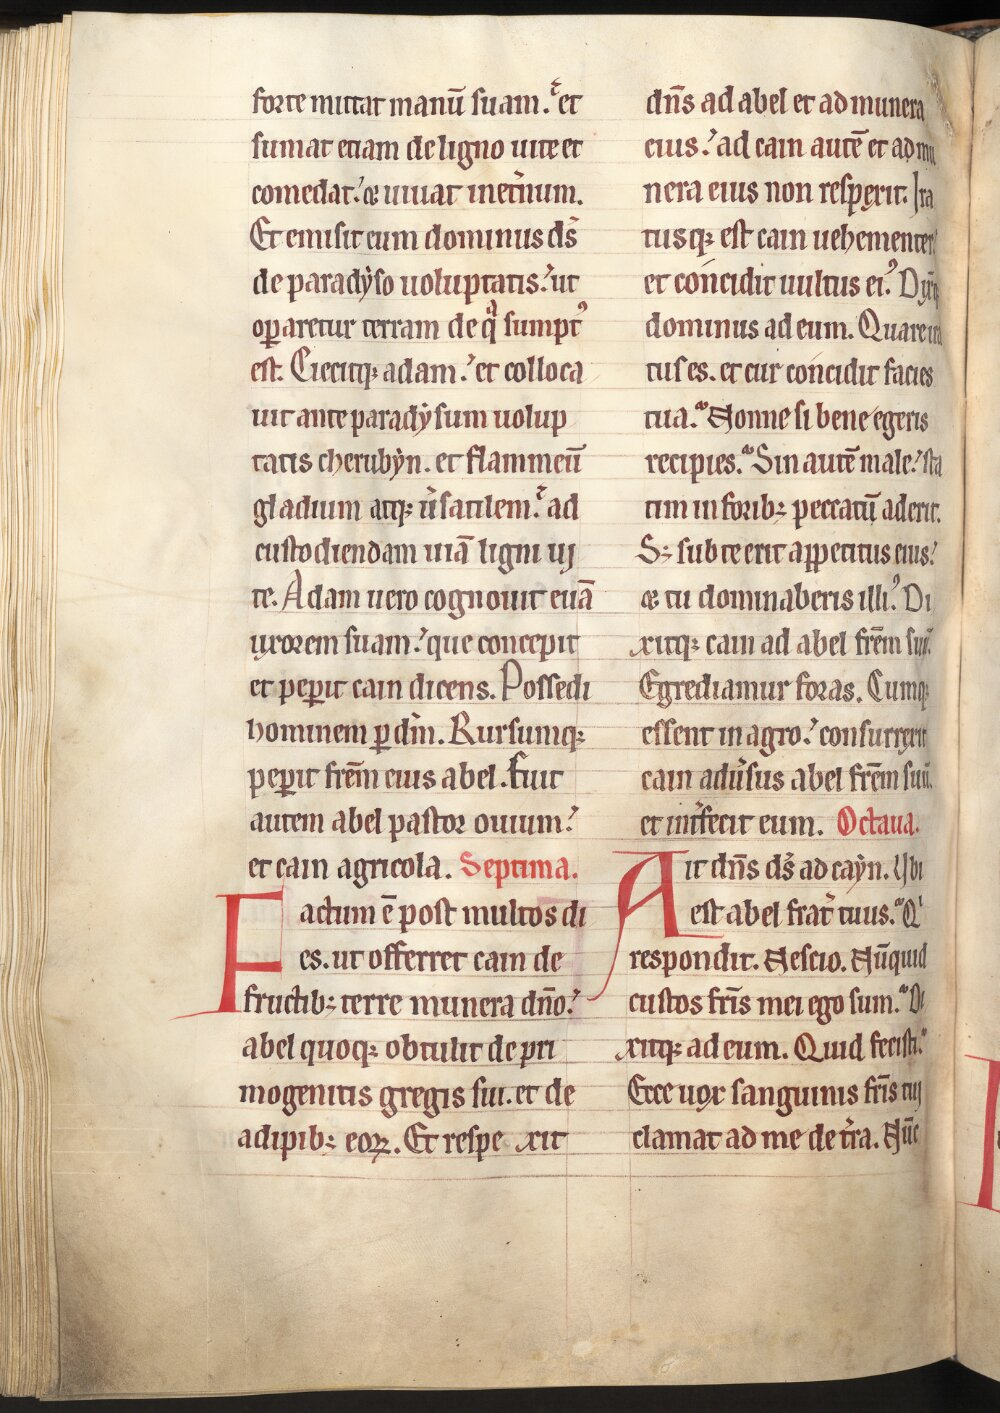 forte mittat manū suam. et
sumat etiam de ligno uite et
comedat. & uiuat inet̄num.
Et emisit eum dominus ds̄
de paradẏso uoluptatis. ut
oꝑaretur terram de q̄ sumptꝰ
est. Eiecitqꝫ adam. et colloca
uit ante paradẏsum uolup
tatis cherubẏn. et flammeū
gladium atqꝫ u̓satilem. ad
custodiendam uiā ligni uj
te. Adam uero cognouit euā
uxorem suam. que concepit
et peꝑit cain dicens. Possedi
hominem ꝑ dm̄. Rursumqꝫ
peꝑit frēm eius abel. Fuit
autem abel pastor ouium.
et cain agricola. Septima.
Factum ē post multos di
es. ut offerret cain de
fructibꝫ terre munera dn̄o.
abel quoqꝫ obtulit de pri
mogenitis gregis sui. et de
adipibꝫ eoꝝ. Et respe xit
dn̄s ad abel et ad munera
eius. ad cain autē et ad mu
nera eius non respexit. Ira
tusqꝫ est cain uehementer.
et concidit uultus eiꝰ.
dominus ad eum. Quare ira
tus es. et cur concidit facies
tua. Nonne si bene egeris
recipies. Sin autē male. sta
tim in foribꝫ peccatū aderit.
Sꝫ sub te erit appetitus eius.
& tu dominaberis illiꝰ. Di
xitqꝫ cain ad abel frēm suū.
Egrediamur foras. Cumqꝫ
essent in agro. consurrexit
cain adu̓sus abel frēm suū.
et int̓fecit eum. Octaua.
Ait dn̄s ds̄ ad caẏn. Ubi
est abel frat̓ tuus. Qi
respondit. Nescio. Nūquid
custos fr̄is mei ego sum. Di
xitqꝫ ad eum. Quid fecisti.
Ecce uox sanguinis fr̄is tuj
clamat ad me de t̓ra. Nūc